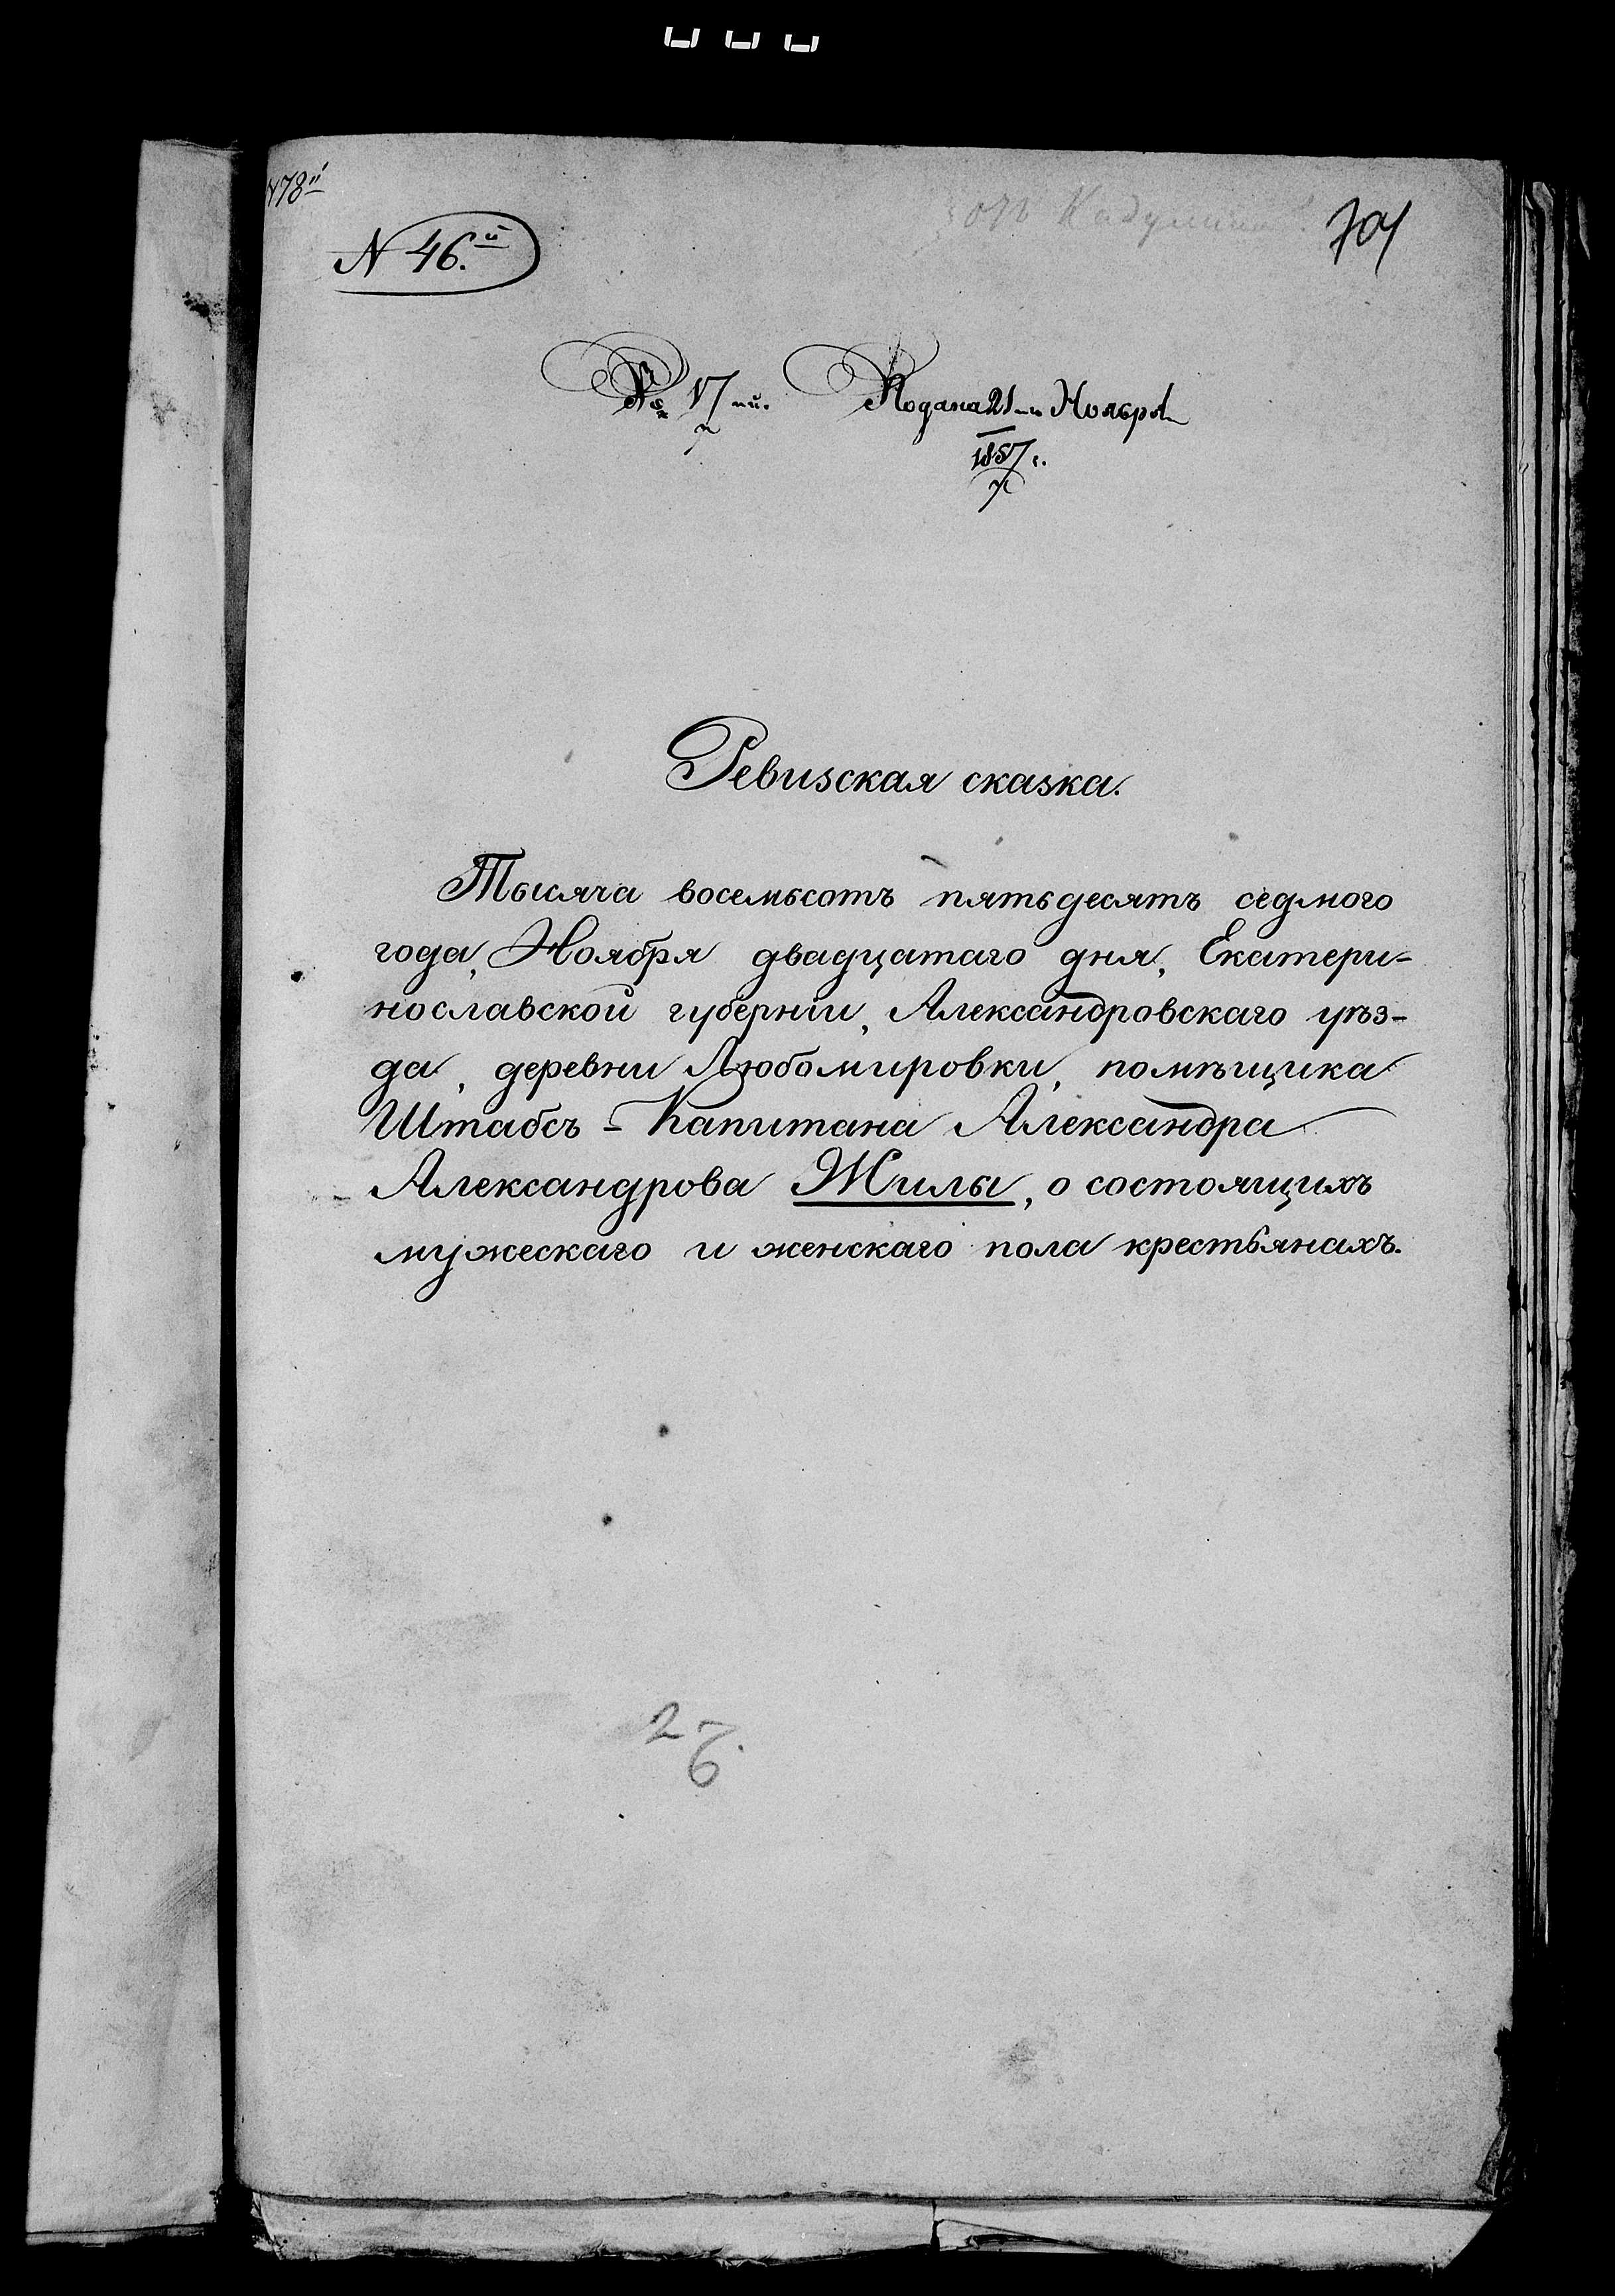 N78й
N 46.й
701
№ 17й. Подана 21го Ноября
1857 г.
Ревизская сказка.
Тысяча восемьсотъ пятьдесятъ седмого
года, Ноября двадцатаго дня, Екатери-
нославской губерніи, Александровскаго уѣз-
да, деревни Любомировки, помѣщика
Штабсъ-Капитана Александра
Александрова Жилы, о состоящихъ
мужескаго и женскаго пола крестьянахъ.